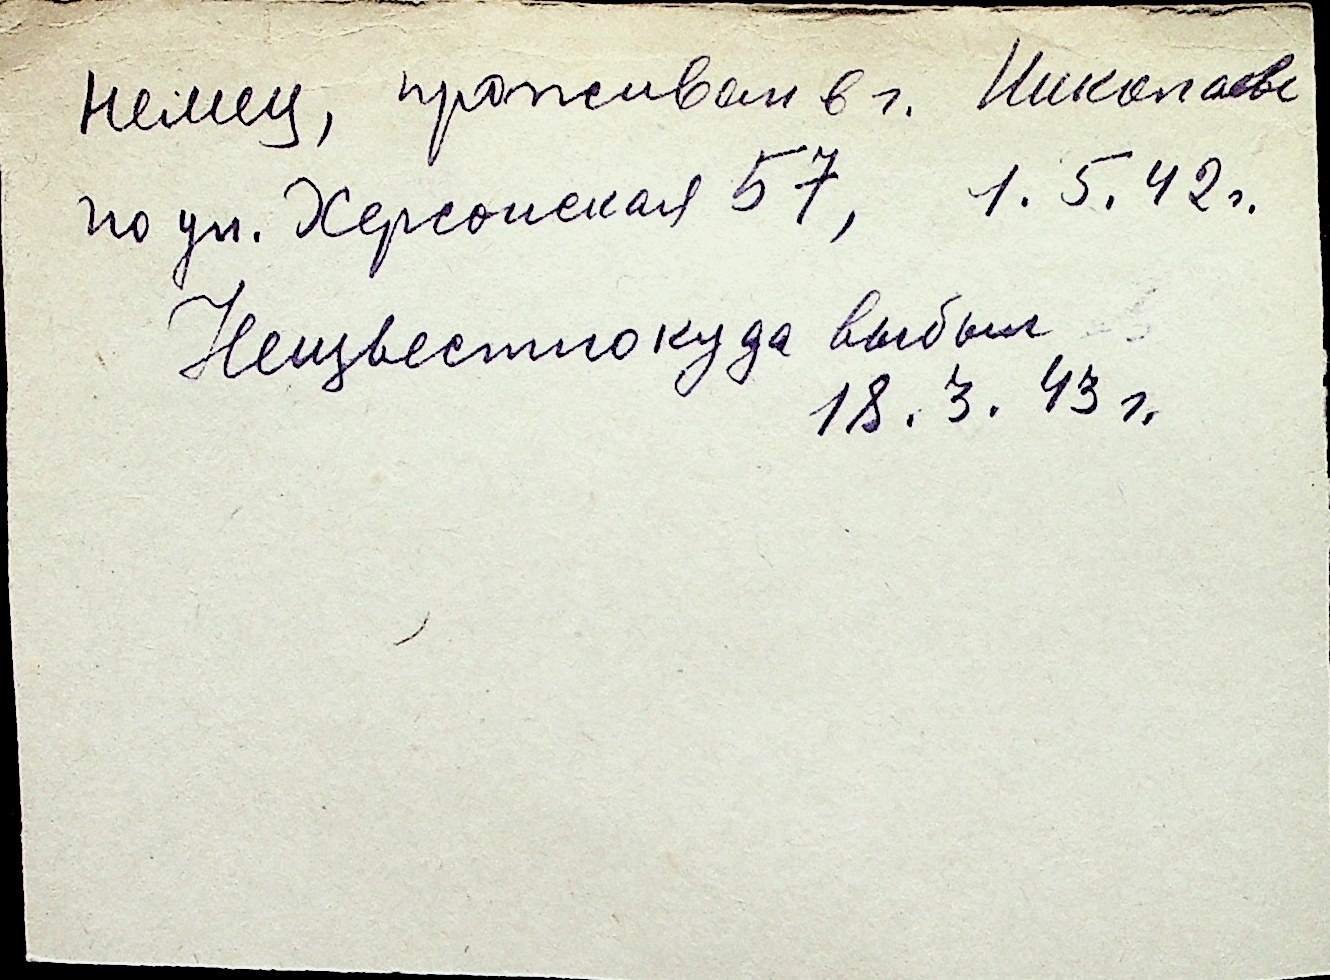 немец, проживал в г. Николаеве
по ул. Херсонская 57, 1.5.42г.
Неизвестно куда выбыл
18.3.43г.